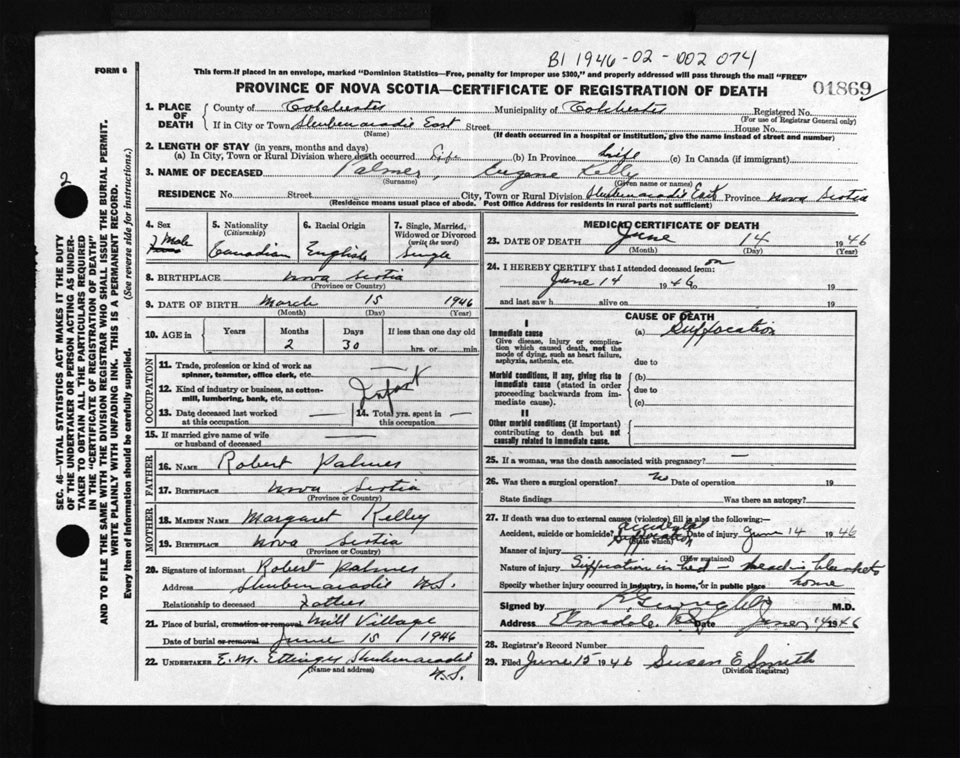 B1 1946-02-002074
FORM 6
This form if placed in an envelope, marked "Dominion Statistics—Free, penalty for improper use $300," and properly addressed will pass through the mail "FREE"
PROVINCE OF NOVA SCOTIA—CERTIFICATE OF REGISTRATION OF DEATH
01869
1. PLACE OF DEATH
County of Colchester Municipality of Colchester Registered No.
(For use of Registrar General only)
If in City or Town Shubenacadie East Street House No.
(Name) (If death occurred in a hospital or institution, give the name instead of street and number)
2. LENGTH OF STAY (in years, months and days)
(a) In City, Town or Rural Division where death occurred Life (b) In Province Life (c) In Canada (if immigrant)
3. NAME OF DECEASED Palmer, Eugene Kelly
(Surname) (Given name or names)
RESIDENCE No. Street City, Town or Rural Division Shubenacadie East Province Nova Scotia
(Residence means usual place of abode. Post Office Address for residents in rural parts not sufficient)
2
SEC. 46—VITAL STATISTICS ACT MAKES IT THE DUTY
OF THE UNDERTAKER OR PERSON ACTING AS UNDER-
TAKER TO OBTAIN ALL THE PARTICULARS REQUIRED
IN THE "CERTIFICATE OF REGISTRATION OF DEATH"
AND TO FILE THE SAME WITH THE DIVISION REGISTRAR WHO SHALL ISSUE THE BURIAL PERMIT.
WRITE PLAINLY WITH UNFADING INK. THIS IS A PERMANENT RECORD.
Every item of information should be carefully supplied. (See reverse side for instructions.)
4. Sex
Male
5. Nationality
(Citizenship)
Canadian
6. Racial Origin
English
7. Single, Married,
Widowed or Divorced
(write the word)
Single
8. BIRTHPLACE Nova Scotia
(Province or Country)
9. DATE OF BIRTH March 15 1946
(Month) (Day) (Year)
10. AGE in
Years Months Days If less than one day old
2 30 hrs. or min.
OCCUPATION
11. Trade, profession or kind of work as
spinner, teamster, office clerk, etc.
12. Kind of industry or business, as cotton-
mill, lumbering, bank, etc.
Infant
13. Date deceased last worked
at this occupation
14. Total yrs. spent in
this occupation
15. If married give name of wife
or husband of deceased
FATHER
16. NAME Robert Palmer
17. BIRTHPLACE Nova Scotia
(Province or Country)
MOTHER
18. MAIDEN NAME Margaret Kelley
19. BIRTHPLACE Nova Scotia
(Province or Country)
20. Signature of informant Robert Palmer
Address Shubenacadie N.S.
Relationship to deceased Father
21. Place of burial, cremation or removal Mill Village
Date of burial or removal June 15 1946
22. UNDERTAKER E. M. Ettinger Shubenacadie
(Name and address) N.S.
MEDICAL CERTIFICATE OF DEATH
23. DATE OF DEATH June 14 1946
(Month) (Day) (Year)
24. I HEREBY CERTIFY that I attended deceased from: on
June 14 1946 19
and last saw h alive on 19
CAUSE OF DEATH
I
Immediate cause
Give disease, injury or complica-
tion which caused death, not the
mode of dying, such as heart failure,
asphyxia, asthenia, etc.
(a) Suffocation
due to
Morbid conditions, if any, giving rise to
immediate cause (stated in order
proceeding backwards from im-
mediate cause).
(b)
due to
(c)
II
Other morbid conditions (if important)
contributing to death but not
causally related to immediate cause.
25. If a woman, was the death associated with pregnancy? —
26. Was there a surgical operation? no Date of operation 19
State findings Was there an autopsy?
27. If death was due to external causes (violence) fill in also the following:—
Accident, suicide or homicide? Accidental Suffocation Date of injury June 14 1946
(State which)
Manner of injury
(How sustained)
Nature of injury Suffocation in bed — head in blankets
Specify whether injury occurred in industry, in home, or in public place home
Signed by M.D.
Address Elmsdale N.S. Date June 14 1946
28. Registrar's Record Number
29. Filed June 15 1946 Susan E Smith
(Division Registrar)